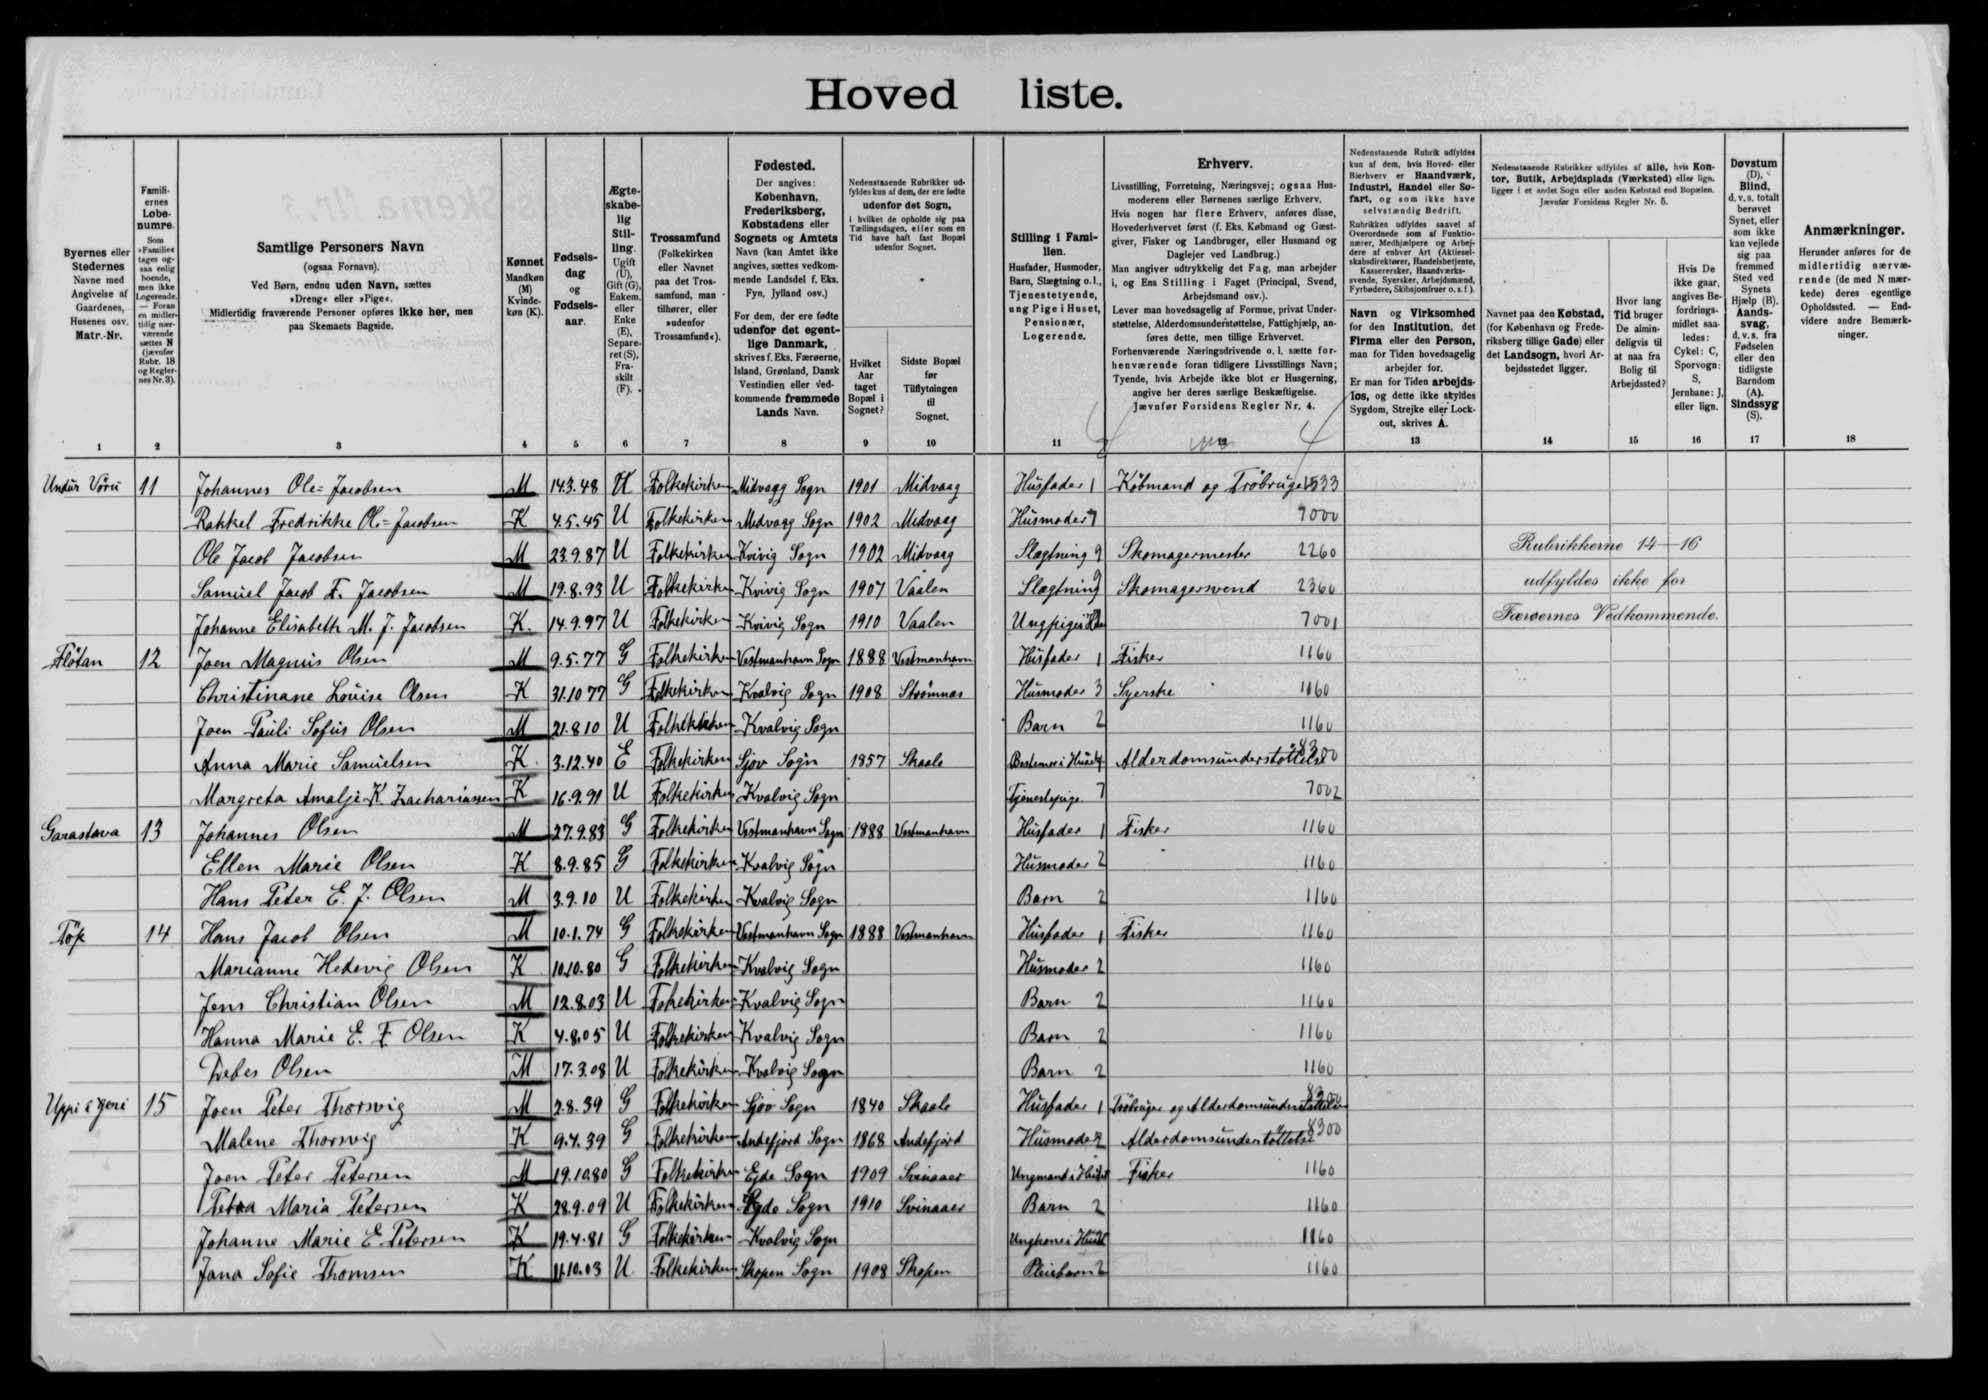 Hoved liste.
Byernes eller Stedernes Navne med Angivelse af Gaardenes, Husenes osv. Matr.-Nr.
Familiernes Løbenumre. Som »Familie« tages ogsaa enlig boende, men ikke Logerende. — Foran en midlertidig nærværende sættes N (jævnfør Rubr. 18 og Reglernes Nr. 3).
Samtlige Personers Navn (ogsaa Fornavn). Ved Børn, endnu uden Navn, sættes »Dreng« eller »Pige«. Midlertidig fraværende Personer opføres ikke her, men paa Skemaets Bagside.
Kønnet Mandkøn (M) Kvindekøn (K).
Fødselsdag og Fødselsaar.
Ægteskabelig Stilling. Ugift (U), Gift (G), Enkem. eller Enke (E), Separeret (S), Fraskilt (F).
Trossamfund (Folkekirken eller Navnet paa det Trossamfund, man tilhører, eller »udenfor Trossamfund«).
Fødested. Der angives: København, Frederiksberg, Købstadens eller Sognets og Amtets Navn (kan Amtet ikke angives, sættes vedkommende Landsdel f. Eks. Fyn, Jylland osv.) For dem, der ere fødte udenfor det egentlige Danmark, skrives f. Eks. Færøerne, Island, Grønland, Dansk Vestindien eller vedkommende fremmede Lands Navn.
Nedenstaaende Rubrikker udfyldes kun af dem, der ere fødte udenfor det Sogn, i hvilket de opholde sig paa Tællingsdagen, eller som en Tid have haft fast Bopæl udenfor Sognet.
Hvilket Aar taget Bopæl i Sognet?
Sidste Bopæl før Tilflytningen til Sognet.
Stilling i Familien. Husfader, Husmoder, Barn, Slægtning o. l., Tjenestetyende, ung Pige i Huset, Pensionær, Logerende.
Erhverv. Livsstilling, Forretning, Næringsvej; ogsaa Husmoderens eller Børnenes særlige Erhverv. Hvis nogen har flere Erhverv, anføres disse, Hovederhvervet først (f. Eks. Købmand og Gæstgiver, Fisker og Landbruger, eller Husmand og Daglejer ved Landbrug.) Man angiver udtrykkelig det Fag, man arbejder i, og Ens Stilling i Faget (Principal, Svend, Arbejdsmand osv.). Lever man hovedsagelig af Formue, privat Understøttelse, Alderdomsunderstøttelse, Fattighjælp, anføres dette, men tillige Erhvervet. Forhenværende Næringsdrivende o. l. sætte forhenværende foran tidligere Livsstillings Navn; Tyende, hvis Arbejde ikke blot er Husgerning, angive her deres særlige Beskæftigelse. Jævnfør Forsidens Regler Nr. 4.
Nedenstaaende Rubrik udfyldes kun af dem, hvis Hoved- eller Bierhverv er Haandværk, Industri, Handel eller Søfart, og som ikke have selvstændig Bedrift. Rubrikken udfyldes saavel af Overordnede som af Funktionærer, Medhjælpere og Arbejdere af enhver Art (Aktieselskabsdirektører, Handelsbetjente, Kassererersker, Haandværkssvende, Syersker, Arbejdsmænd, Fyrbødere, Skibsjomfruer o. s. f.).
Navn og Virksomhed for den Institution, det Firma eller den Person, man for Tiden hovedsagelig arbejder for. Er man for Tiden arbejdsløs, og dette ikke skyldes Sygdom, Strejke eller Lockout, skrives A.
Nedenstaaende Rubrikker udfyldes af alle, hvis Kontor, Butik, Arbejdsplads (Værksted) eller lign. ligger i et andet Sogn eller anden Købstad end Bopælen. Jævnfør Forsidens Regler Nr. 5.
Navnet paa den Købstad, (for København og Frederiksberg tillige Gade) eller det Landsogn, hvori Arbejdsstedet ligger.
Hvor lang Tid bruger De almindeligvis til at naa fra Bolig til Arbejdssted?
Hvis De ikke gaar, angives Befordringsmidlet saaledes: Cykel: C, Sporvogn: S, Jernbane: J, eller lign.
Døvstum (D), Blind, d. v. s. totalt berøvet Synet, eller som ikke kan vejlede sig paa fremmed Sted ved Synets Hjælp (B). Aandssvag, d. v. s. fra Fødselen eller den tidligste Barndom (A). Sindssyg (S).
Anmærkninger. Herunder anføres for de midlertidig nærværende (de med N mærkede) deres egentlige Opholdssted. — Endvidere andre Bemærkninger.
1 2 3 4 5 6 7 8 9 10 11 13 14 15 16 17 18
Undir Vöru 11 Johannes Ole=Jacobsen M 14.3.48 U Folkekirken Midvaag Sogn 1901 Midvaag Husfader 1 Köbmand og Tröbruger 1533
Rakkel Fredrikke Ol=Jacobsen K 4.5.45 U Folkekirken Midvaag Sogn 1902 Midvaag Husmoder 7 7000
Ole Jacob Jacobsen M 23.9.87 U Folkekirken Kvivig Sogn 1902 Midvaag Slægtning 9 Skomagermester 2260
Rubrikkerne 14—16
Samuel Jacob F. Jacobsen M 19.8.93 U Folkekirken Kvivig Sogn 1907 Vaalen Slægtning 9 Skomagersvend 2360
udfyldes ikke for
Johanne Elisabeth M. J. Jacobsen K. 14.9.97 U Folkekirken Kvivig Sogn 1910 Vaalen Ungpige i 7001
Færøernes Vedkommende.
Flötan 12 Joen Magnus Olsen M 9.5.77 G Folkekirken Vestmanhavn Sogn 1888 Vestmanhavn Husfader 1 Fisker 1160
Christinane Louise Olsen K 31.10.77 G Folkekirken Kvalvig Sogn 1908 Strömnæs Husmoder 3 Syerske 1160
Joen Pauli Sofus Olsen M 21.8.10 U Folkekirken Kvalvig Sogn Barn 2 1160
Anna Marie Samuelsen K. 3.12.40 E Folkekirken Sjov Sogn 1857 Skaale Bestemor i Huset Alderdomsunderstöttelse 8300
Margreta Amalje K. Zachariassen K 16.9.91 U Folkekirken Kvalvig Sogn Tjenestepige 7 7002
Garastova 13 Johannes Olsen M 27.9.83 G Folkekirken Vestmanhavn Sogn 1888 Vestmanhavn Husfader 1 Fisker 1160
Ellen Marie Olsen K 8.9.85 G Folkekirken Kvalvig Sogn Husmoder 2 1160
Hans Peter E. J. Olsen M 3.9.10 U Folkekirken Kvalvig Sogn Barn 2 1160
14 Hans Jacob Olsen M 10.1.74 G Folkekirken Vestmanhavn Sogn 1888 Vestmanhavn Husfader 1 Fisker 1160
Marianne Hedevig Olsen K 10.10.80 G Folkekirken Kvalvig Sogn Husmoder 2 1160
Jens Christian Olsen M 12.8.03 U Folkekirken Kvalvig Sogn Barn 2 1160
Hanna Marie E. F Olsen K 4.8.05 U Folkekirken Kvalvig Sogn Barn 2 1160
Debes Olsen M 17.3.08 U Folkekirken Kvalvig Sogn Barn 2 1160
Uppi i Gjeri 15 Joen Peter Thorsvig M 2.8.39 G Folkekirken Sjov Sogn 1840 Skaale Husfader 1 Tröbruger og Alderdomsunderstöttelse 8300
Malene Thorsvig K 9.7.39 G Folkekirken Andefjord Sogn 1868 Andefjord Husmoder 2 Alderdomsunderstöttelse 8300
Joen Peter Petersen M 19.10.80 G Folkekirken Ejde Sogn 1909 Svinaaer Ungmand i Huset Fisker 1160
Petra Maria Petersen K 28.9.09 U Folkekirken Ejde Sogn 1910 Svinaaer Barn 2 1160
Johanne Marie E. Petersen K 19.4.81 G Folkekirken Kvalvig Sogn Ungkone i Huset 1160
Jana Sofie Thomsen K 11.10.03 U Folkekirken Skopen Sogn 1908 Skopen Pleiebarn 2 1160